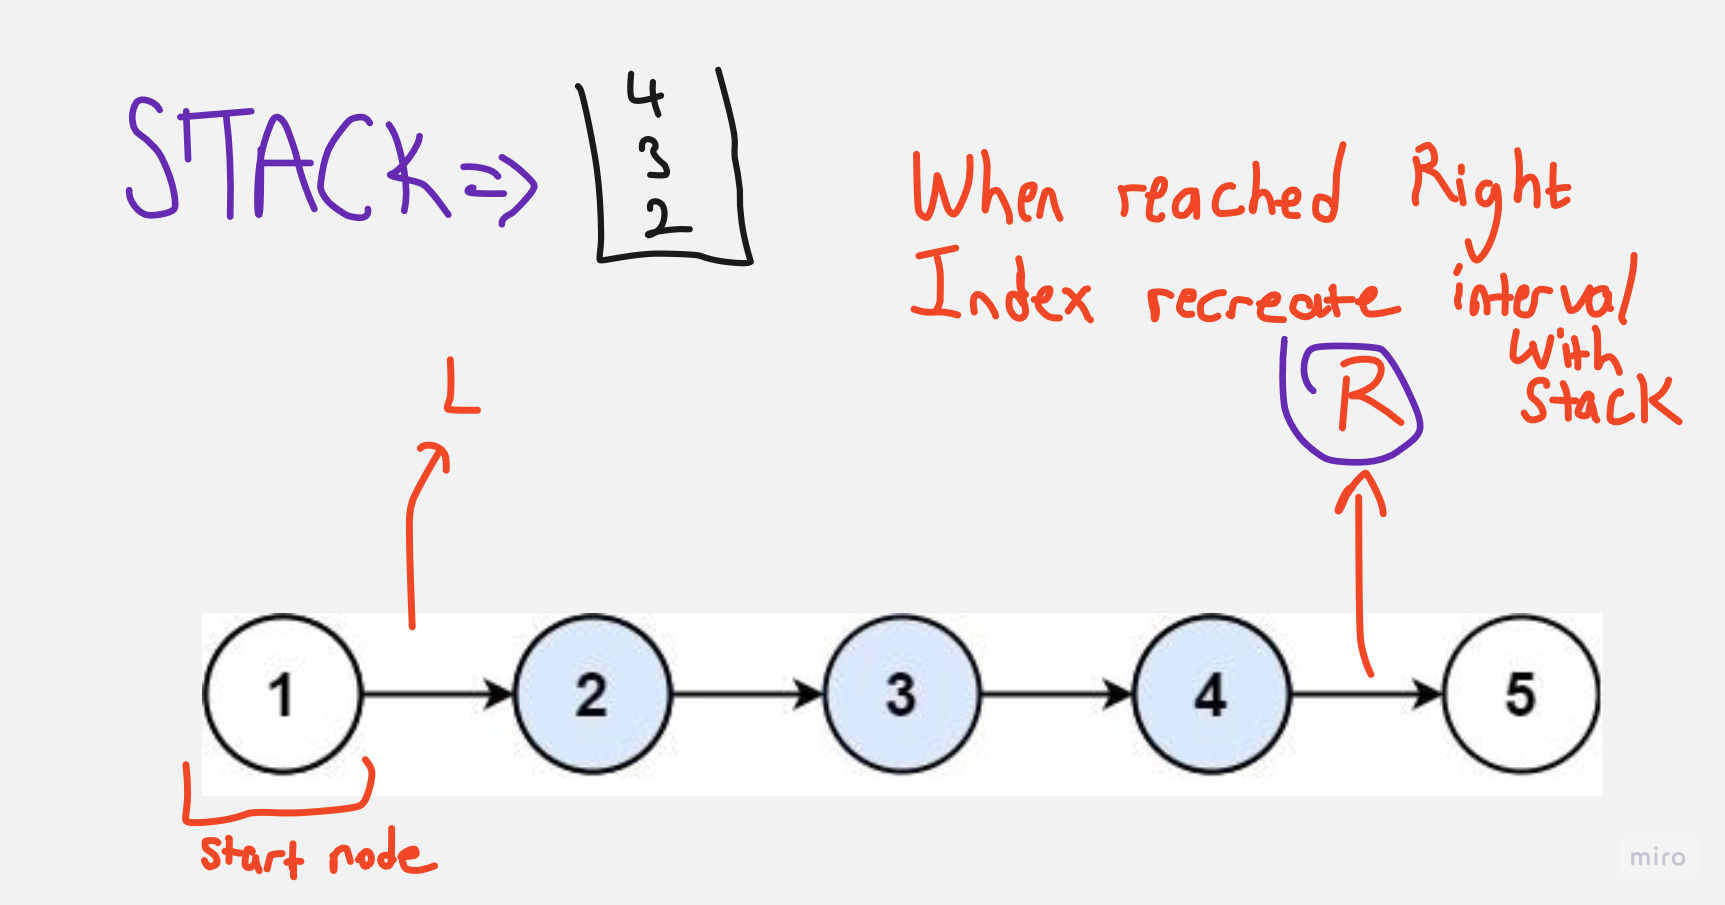 STACK =>
4
3
2
When reached Right
Index recreate interval
with
stack
L
R
1
2
3
4
5
start node
miro